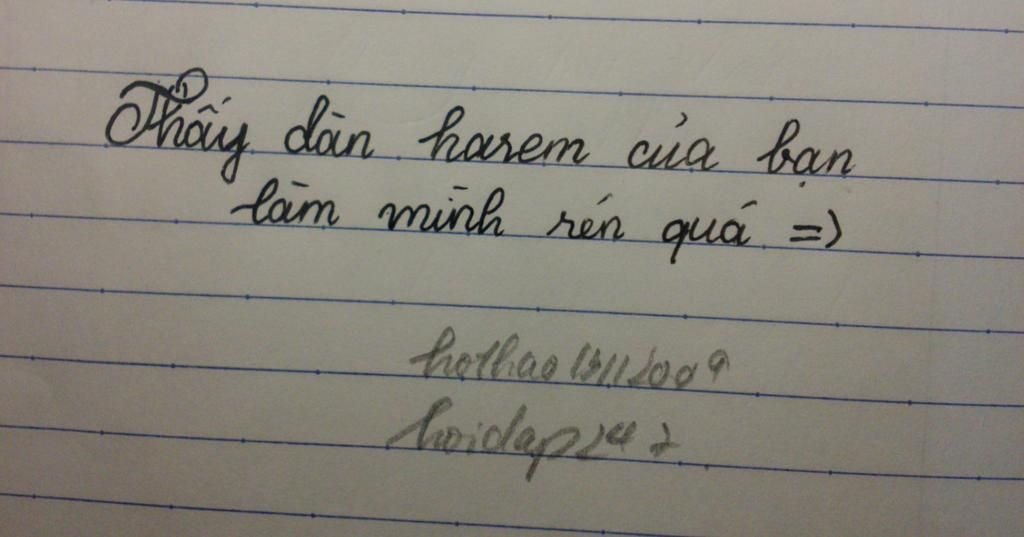 Thấy dàn harem của bạn
làm mình rén quá =)
hothao13112009
hoidap247